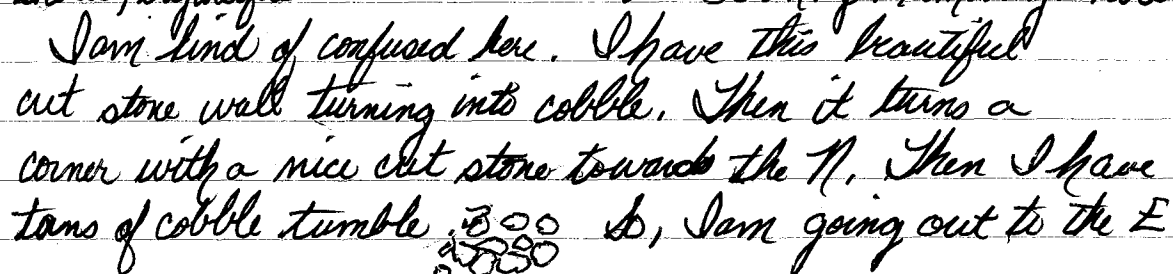 I am kind of confused here. I have this beautiful
cut stone wall turning into cobble. Then it turns a
corner with a nice cut stone towards the N. Then I have
tons of cobble tumble. So, I am going out to the E